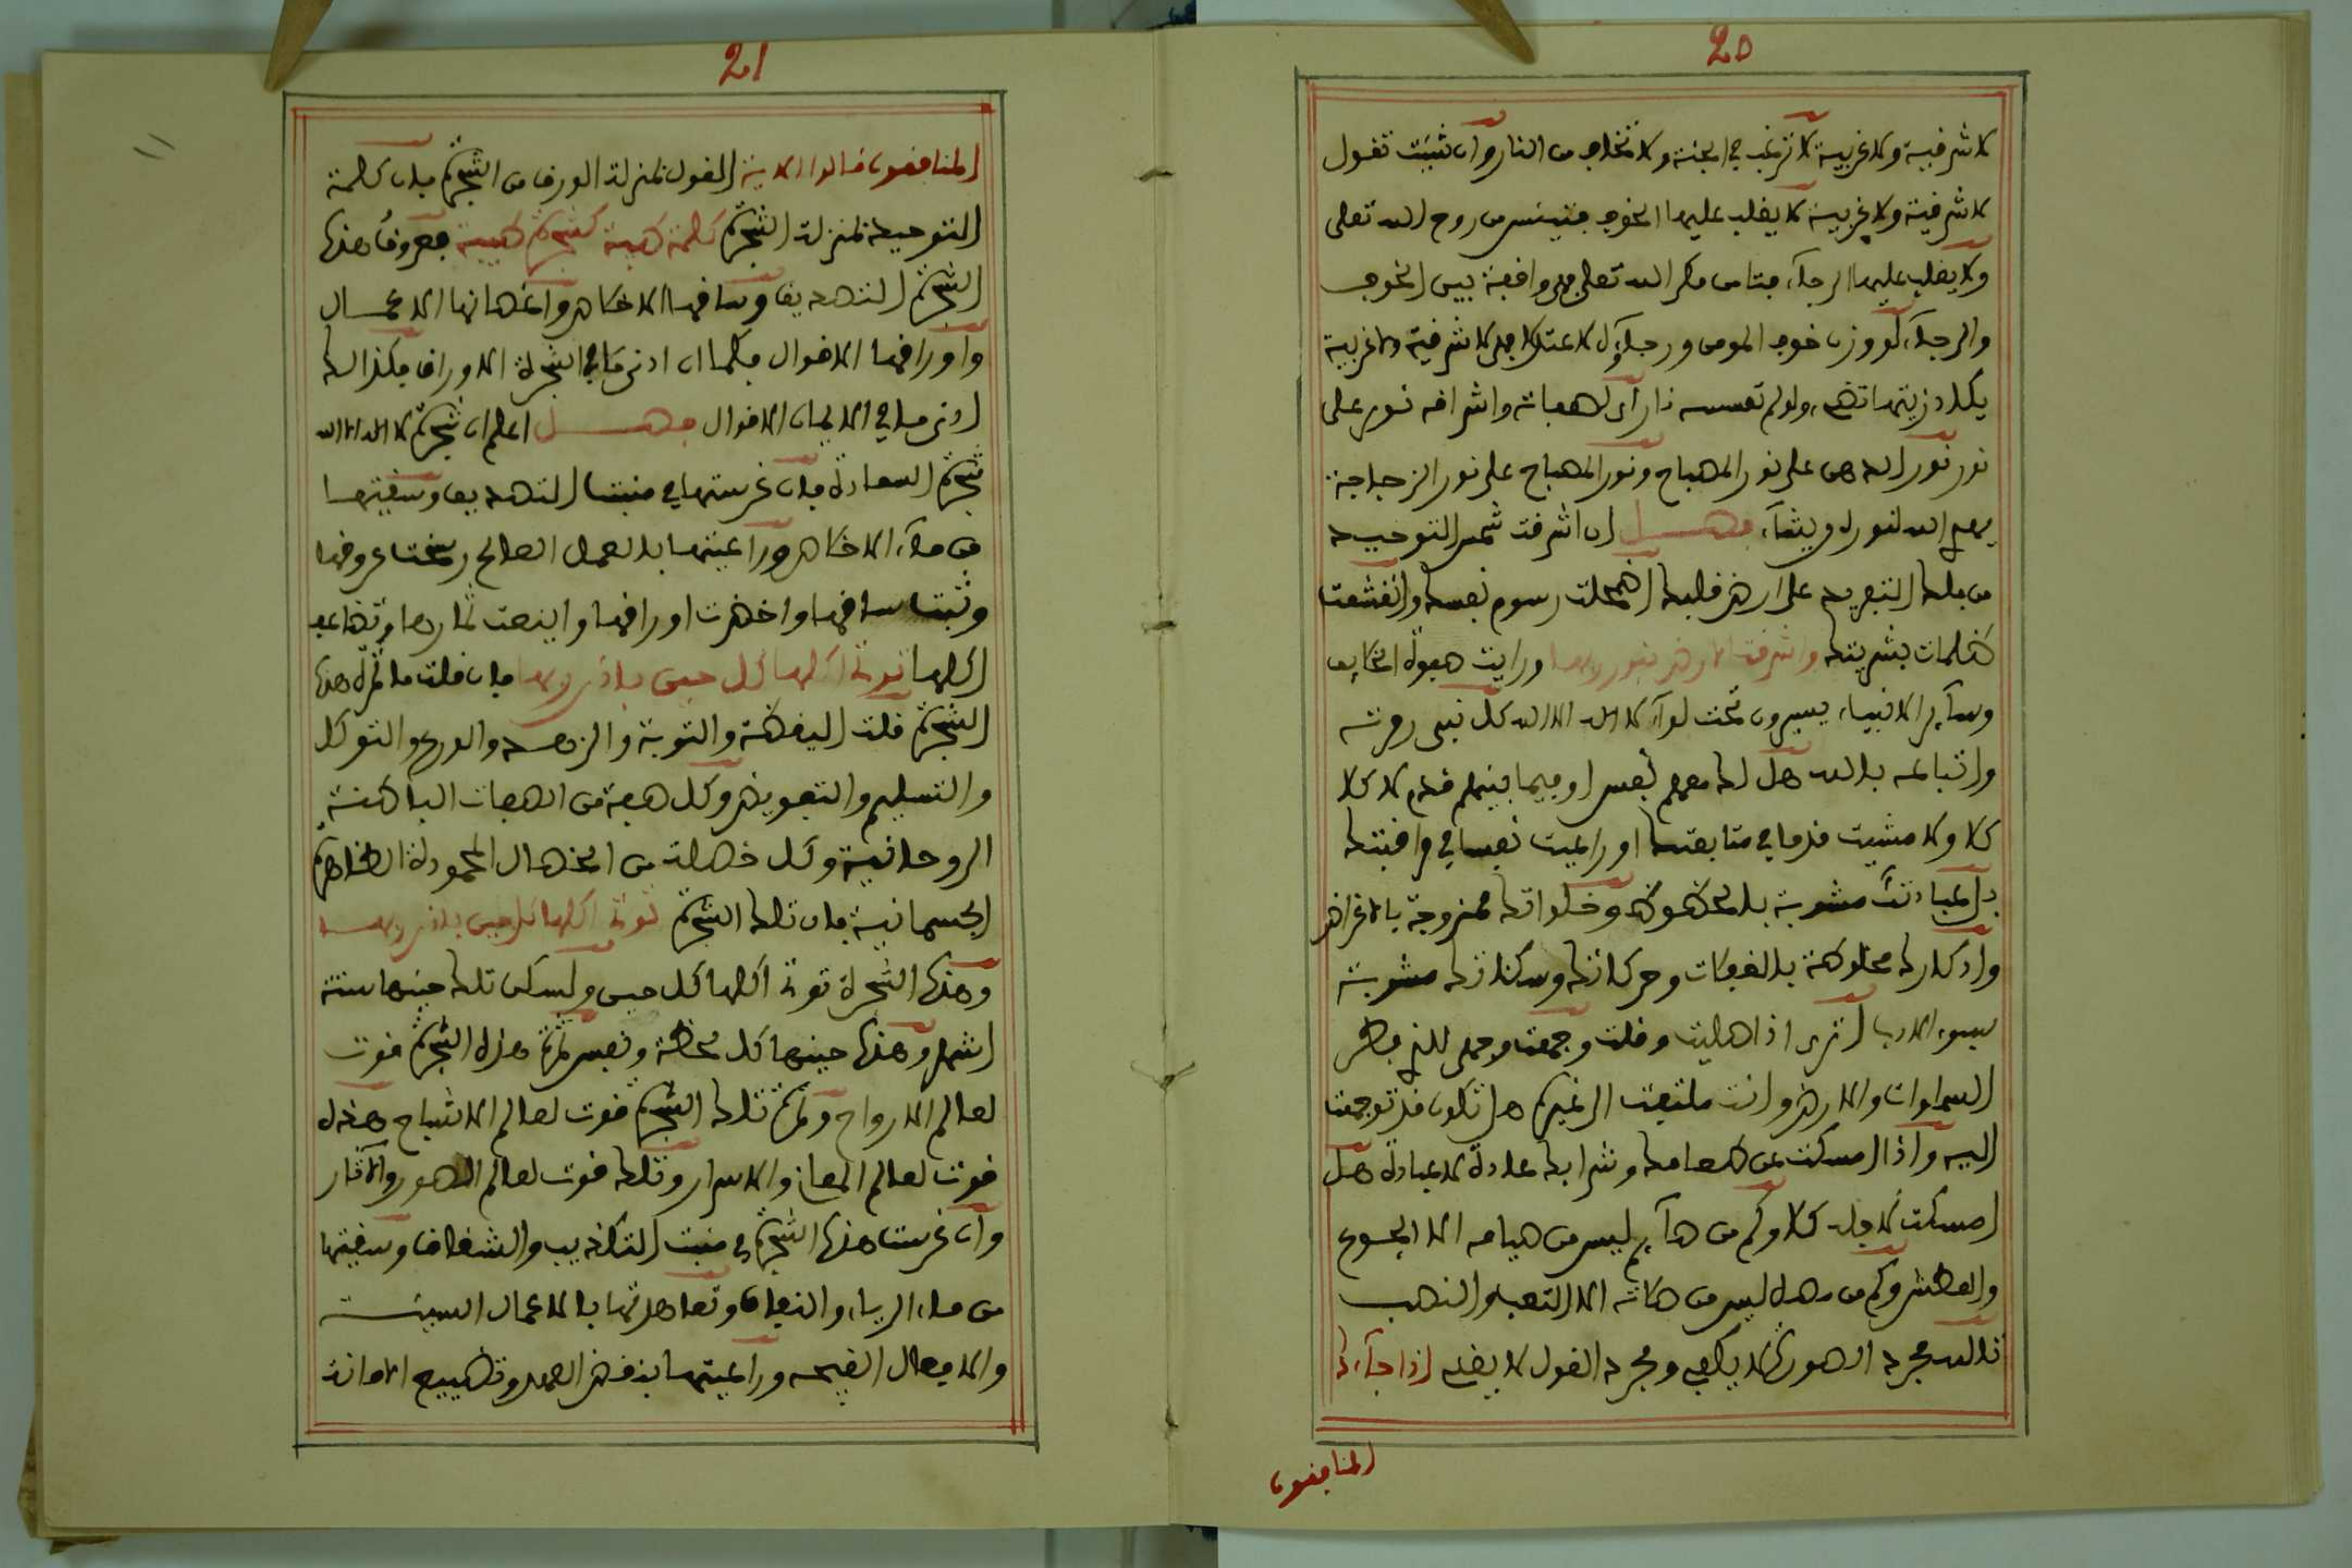 20
لا شرقية ولا غربية لا ترغب في الجنة ولا تخاف من النار وان شيت تقول
لا شرقية ولا غربية لا يغلب عليها الخوف فتيئس من روح الله تعلى
ولا يغلب عليها الرجاء فتامن مكر الله تعلى فهي واقفة بين الخوف
والرجاء لو وزن خوف المومن ورجاؤه لاعتدلا فهي لا شرقية ولا غربية
يكاد زيتها تضيء ولو لم تمسسه نار اي لصفاته واشراقه نور على
نور نور الدهن على نور المصباح ونور المصباح على نور الزجاجة
يهدي الله لنوره من يشاء فصل ان اشرقت شمس التوحيد
من فلك التفريد على ارض قلبك اضمحلت رسوم نفسك وانقشعت
ظلمات بشريتك واشرقت الارض بنور ربها ورايت صفوة الخلايف
وساير الانبياء يسيرون تحت لواء لا اله الا الله كل نبي وامته
واتباعه بالله هل لك معهم نفس او فيما بينهم قدم لا كلا
كلا ولا مشيت قدما في متابعتك او راعيت نفسا في مراقبتك
بل عبادتك مشوبة بالحظوظ وخلواتك ممزوجة بالاغراض
واذكارك مخلوطة بالغفلات وحركاتك وسكناتك مشوبة
بسوء الادب اترى اذا صليت وقلت وجهت وجهي للذي فطر
السماوات والارض وانت ملتفت الى غيره هل تكون قد توجهت
اليه واذا امسكت عن طعامك وشرابك عادة لا عبادة هل
امسكت لاجله كلا وكم من صائم ليس من صيامه الا الجوع
والعطش وكم من مصل ليس من صلاته الا التعب والنصب
تالله مجرد الصورة لا يكفي ومجرد القول لا يغني اذا جاءك
المنافقون
21
المنافقون قالوا الاية القول بمنزلة الورق من الشجرة فان كلمة
التوحيد بمنزلة الشجرة كلمة طيبة كشجرة طيبة فعروق هذه
الشجرة التصديق وساقها الاخلاص واغصانها الاعمال
واوراقها الاقوال فكما ان ادنى ما في الشجرة الاوراق فكذالك
ادنى ما في الايمان الاقوال فصل اعلم ان شجرة لا اله الا الله
شجرة السعادة فان غرستها في منبت التصديق وسقيتها
من ماء الاخلاص وراعيتها بالعمل الصالح رسخت عروقها
وثبت ساقها واخضرت اوراقها واينعت ثمارها وتضاعف
اكلها توتي اكلها كل حين باذن ربها فان قلت ما ثمرة هذه
الشجرة قلت اليقظة والتوبة والزهد والورع والتوكل
والتسليم والتفويض وكل صفة من الصفات الباطنة
الروحانية وكل خصلة من الخصال المحمودة الظاهرة
الجسمانية فان تلك الشجرة توتي اكلها كل حين باذن ربها
وهذه الشجرة توتي اكلها كل حين ولكن تلك حينها ستة
اشهر وهذه حينها كل لحظة ونفس ثمرة هذه الشجرة قوت
لعالم الارواح وثمرة تلك الشجرة قوت لعالم الاشباح هذه
قوت لعالم المعاني والاسرار وتلك قوت لعالم الصور والاثار
وان غرست هذه الشجرة في منبت التكذيب والشقاق وسقيتها
من ماء الرياء والنفاق وتعاهدتها بالاعمال السيئة
والافعال القبيحة وراعيتها بنقض العهد وتضييع الامانة